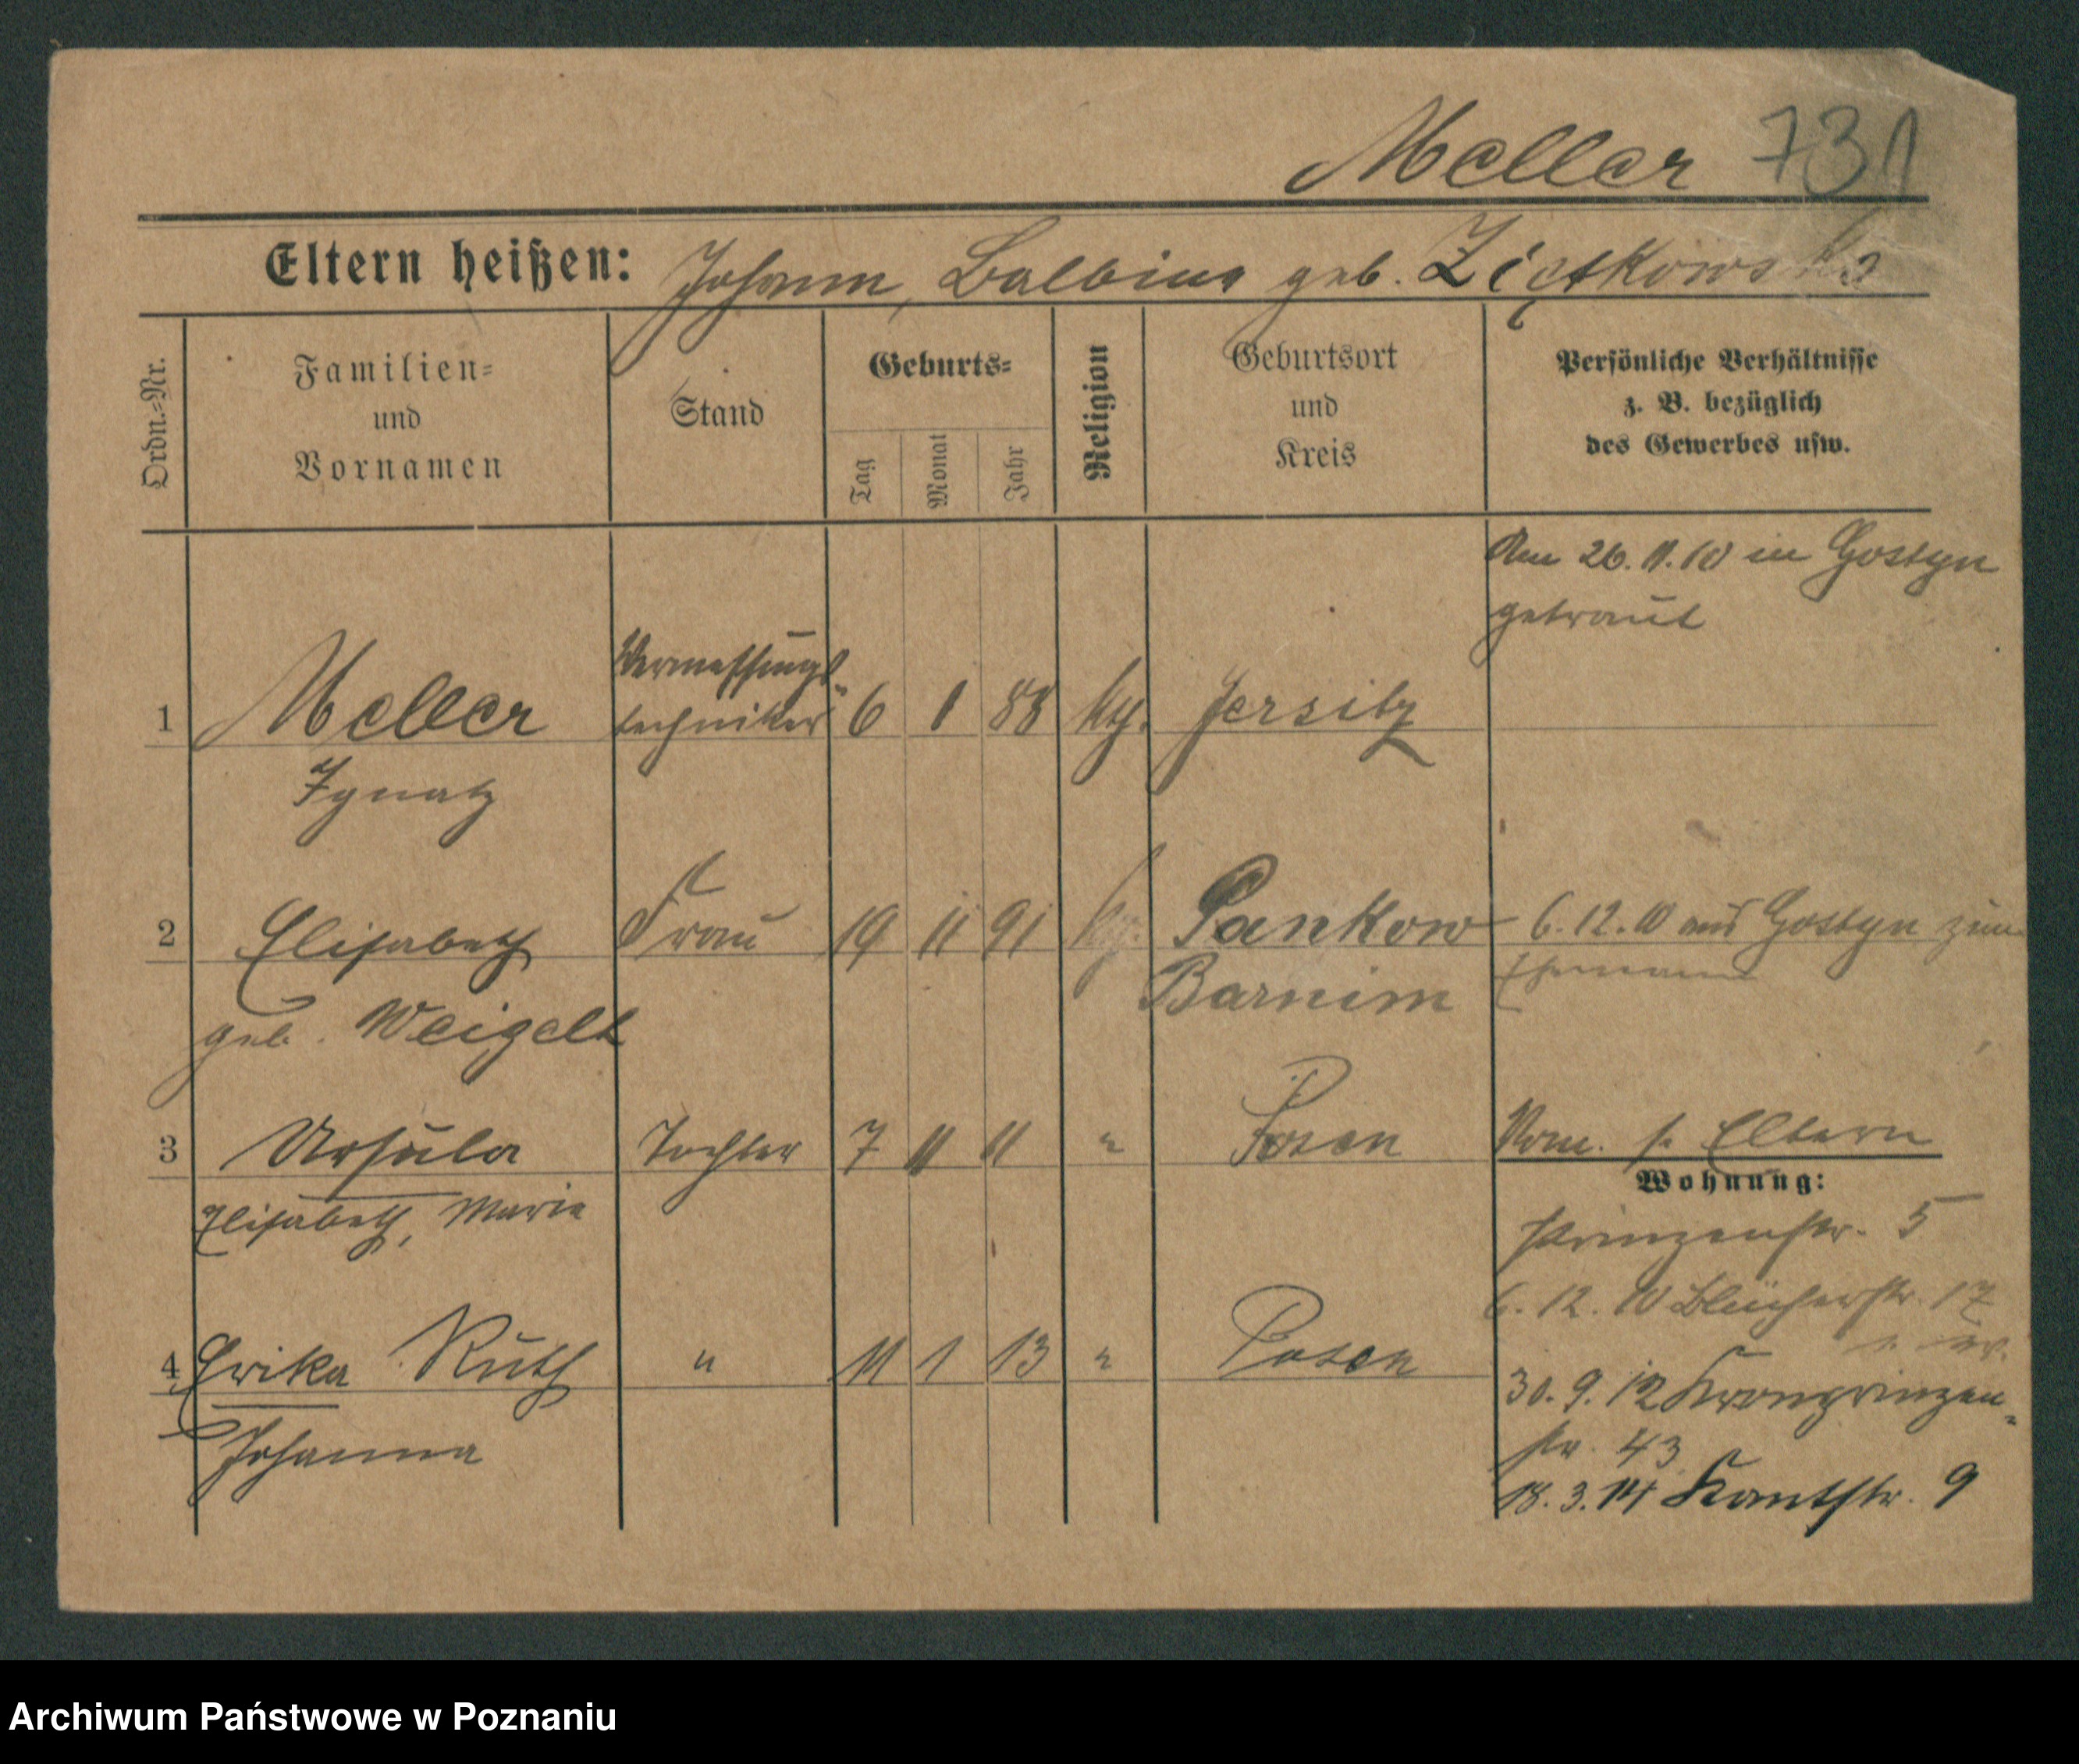 Meller 731
Eltern heißen: Johann, Balbina geb. Ziętkowska
Ordn.=Nr.
Familien=
und
Vornamen
Stand
Geburts=
Tag
Monat
Jahr
Religion
Geburtsort
und
Kreis
Persönliche Verhältnisse
z. B. bezüglich
des Gewerbes usw.
Am 26.11.10 in Gostyn
getraut
1 Meller Vermessungs- techniker 6 1 88 Jersitz
Ignatz
2 Elisabeth Frau 19 11 91 Pankow 6.12.10 aus Gostyn zum
geb. Weigelt Barnim Ehemann
3 Ursula Tochter 7 11 11 " Posen s. Eltern
Elisabeth, Maria
Wohnung:
Prinzenstr. 5
6.12.10 Blücherstr. 17
4 Erika Ruth " 11 1 13 " Posen
Johanna
30.9.12 Kronprinzen-
str. 43
18.3.14 Kantstr. 9
Archiwum Państwowe w Poznaniu